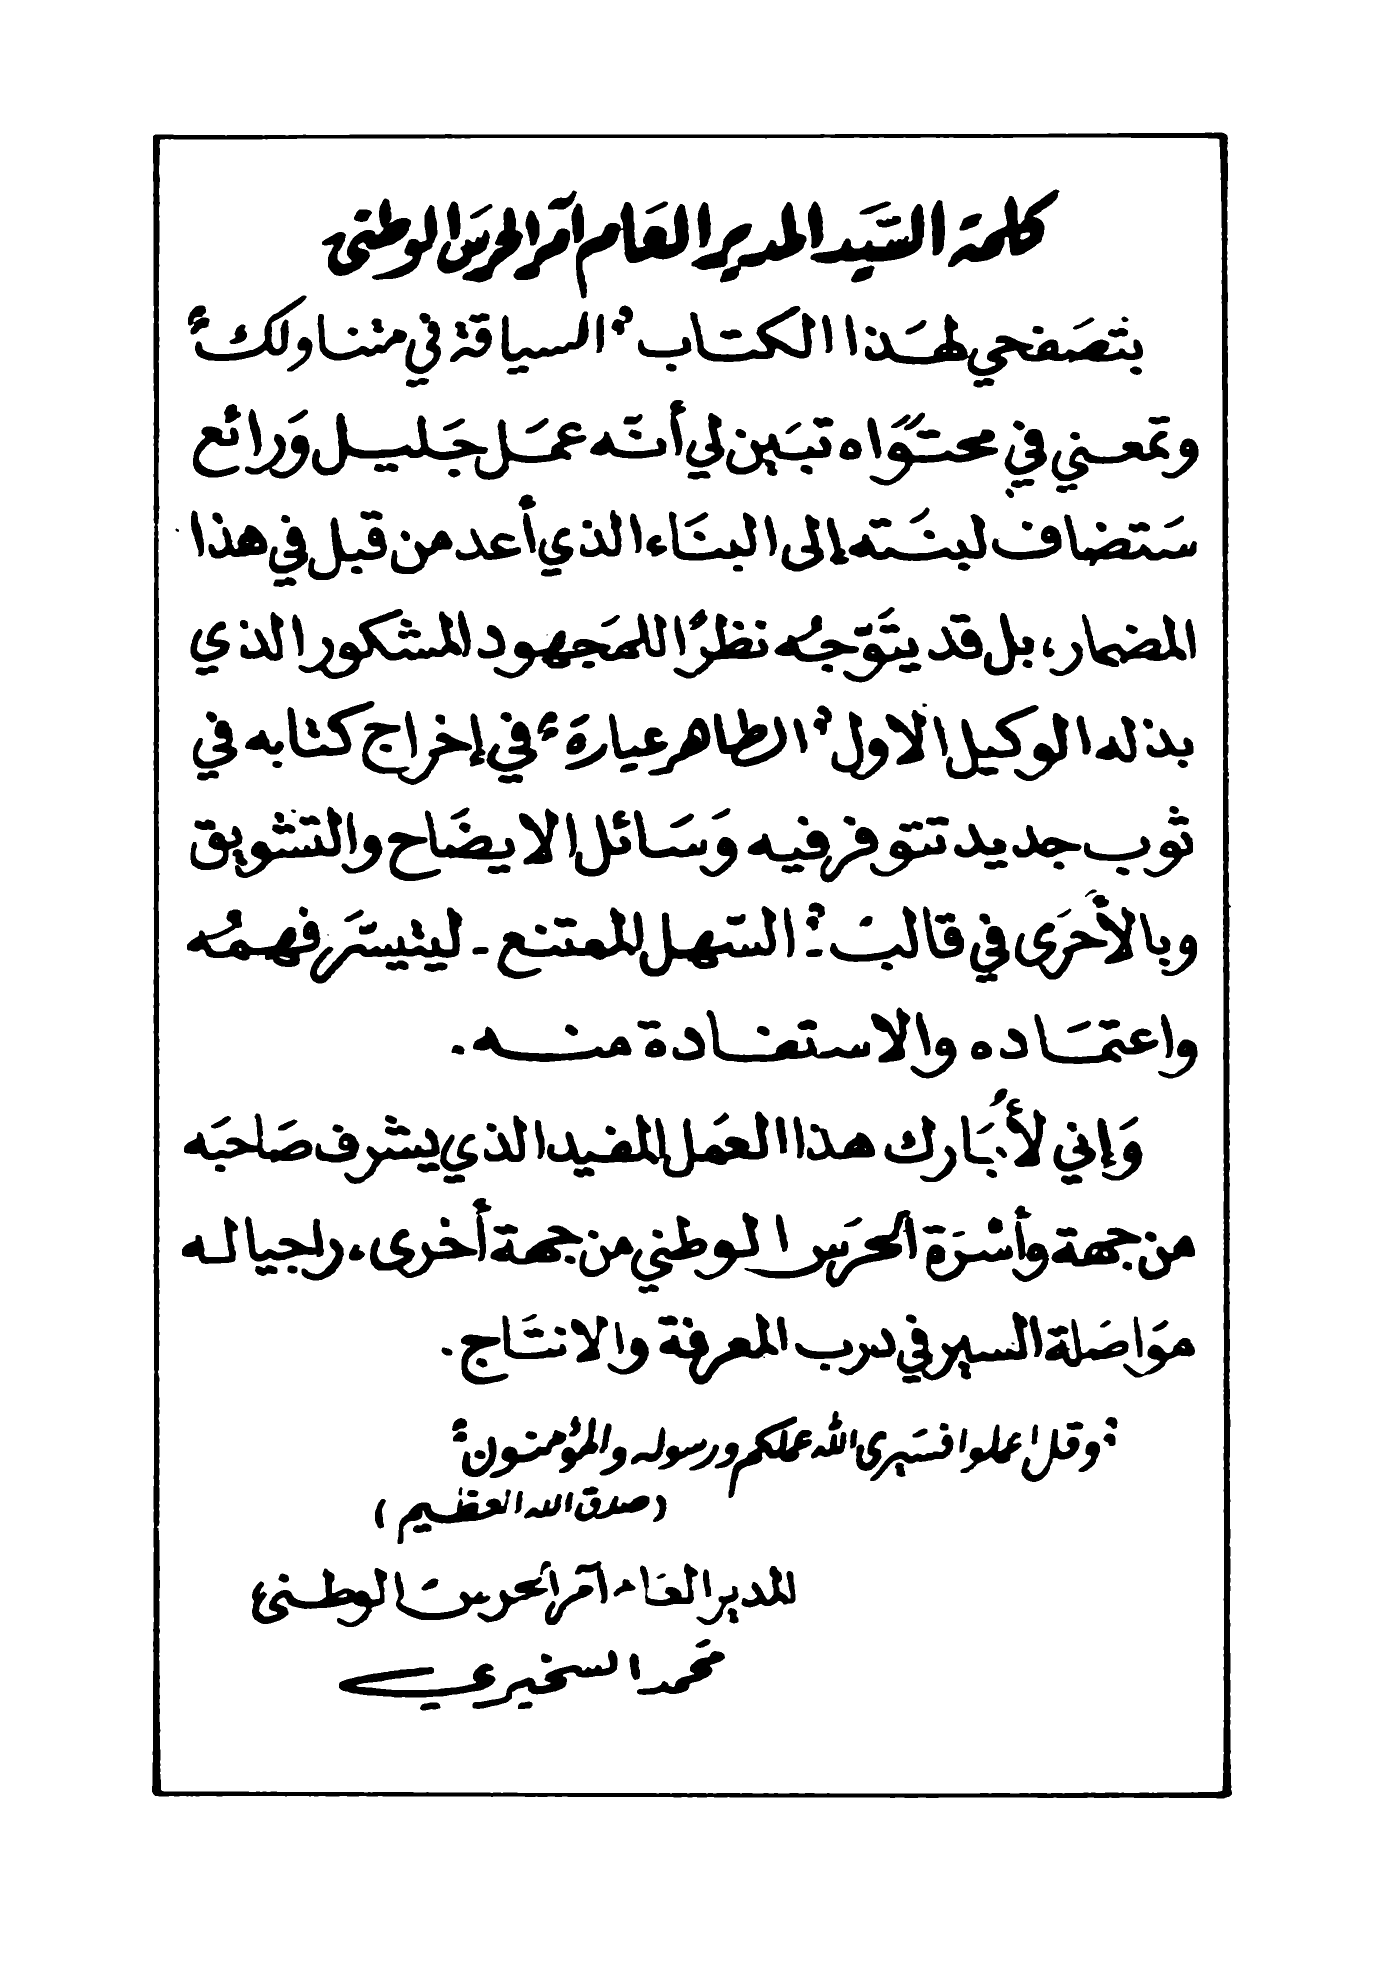 كلمة السَّيد المدير العَام آمر الحرَس الوطني
بتصَفحي لهَذا الكتاب "السياقة في متناولك"
وتمعني في محتوَاه تبَين لي أنّه عمَل جَليل وَرائع
سَتضاف لبنَته إلى البنَاء الذي أعد من قبل في هذا
المضمار، بل قد يتَوّجُه نظرًا للمَجهود المشكور الذي
بذله الوكيل الاول "الطاهر عيارة" في إخراج كتابه في
ثوب جديد تتوفر فيه وَسَائل الايضَاح والتشويق
وبالأحَرَى في قالب : "السّهل الممتنع - ليتيسَّر فهمُه
واعتمَاده والاستفادة منه .
وَإني لأُبَارك هذا العمَل المفيد الذي يشرف صَاحبَه
من جهة وأسْرَة الحرَس الوطني من جهة أخرى، راجيا له
موَاصَلة السير في درب المعرفة والانتَاج .
"وقل اعملوا فسَيرى الله عملكم ورسوله والمؤمنون"
(صدق الله العظيم)
المدير العَام آمر الحرس الوطني
محمد السخيري